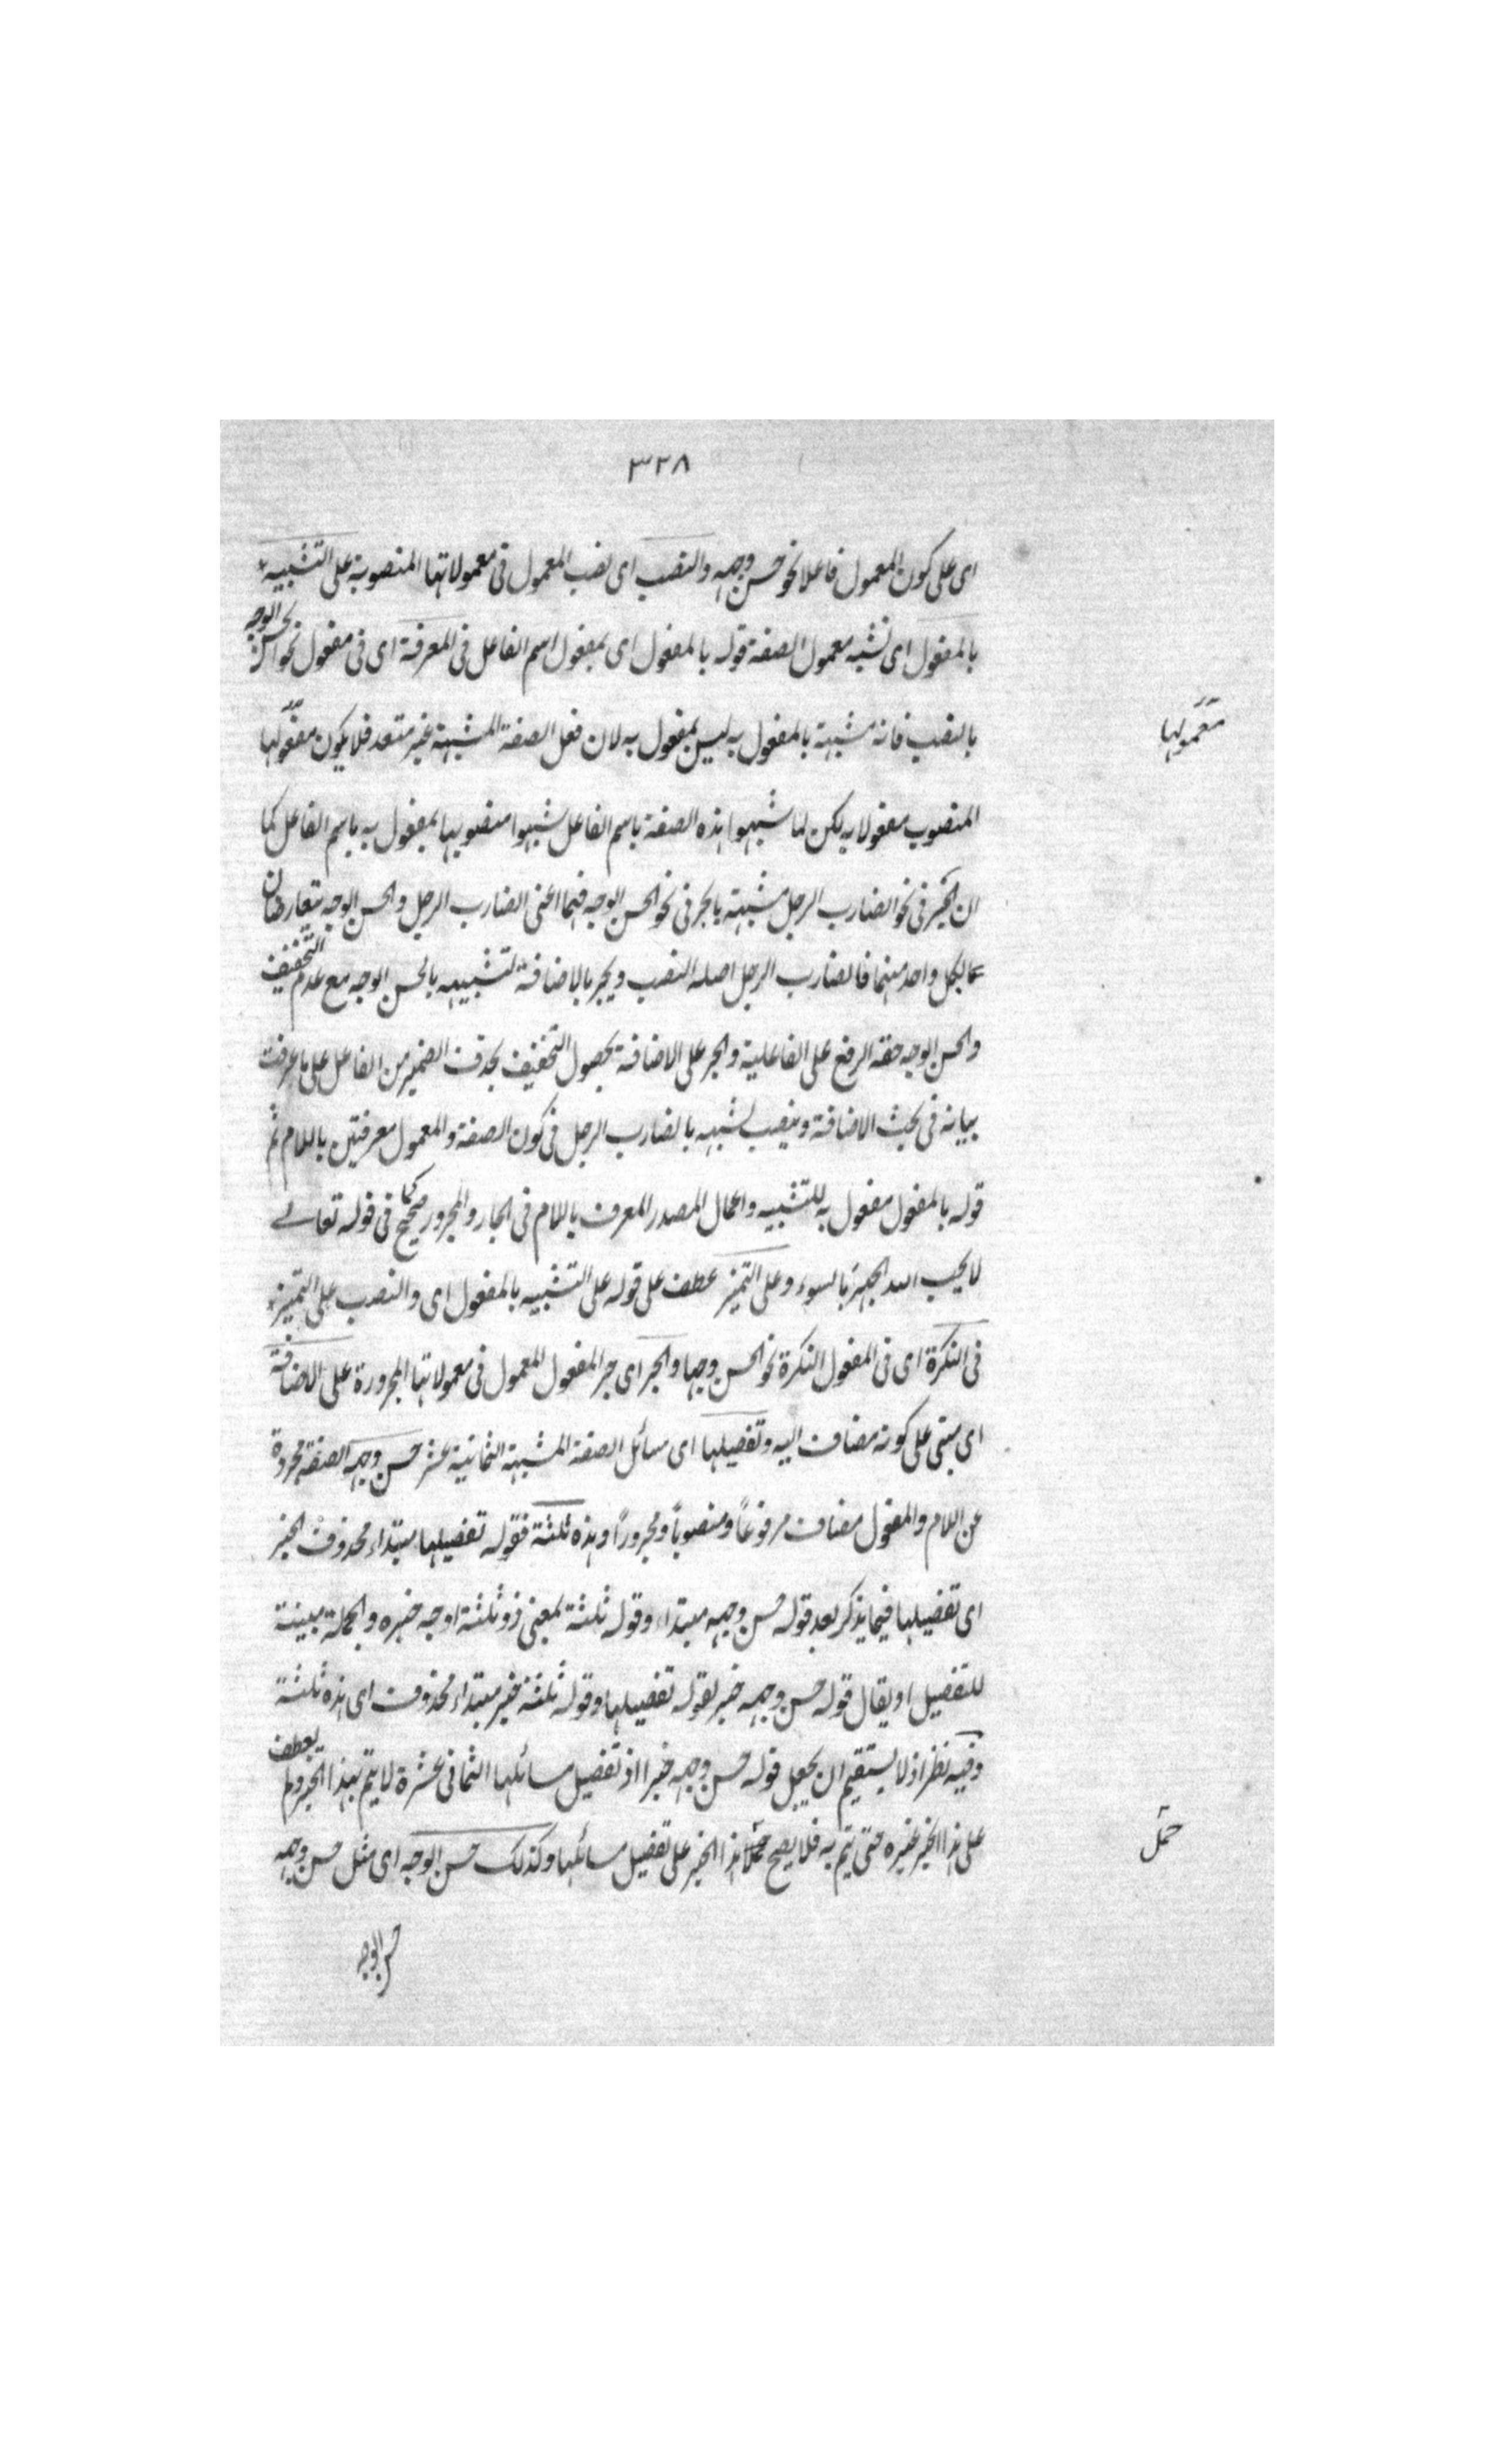 ٣٢٨
اى على كون المعمول فاعلا نحو حسن وجهه والنصب اى نصب المعمول فى معمولاتها المنصوبة على التشبيه
بالمفعول اى تشبه معمول الصفة قوله بالمفعول اى بمفعول اسم الفاعل فى المعرفة اى فى مفعول نحو الحسن الوجه
بالنصب فانه مشبهة بالمفعول به ليس بمفعول به لان فعل الصفة المشبهة غير متعد فلا يكون مفعولها
معمولها
المنصوب مفعولا به لكن لما شبهوا هذه الصفة باسم الفاعل شبهوا منصوبها بمفعول به باسم الفاعل كما
ان الجر فى نحو الضارب الرجل مشبهة بالجر فى نحو الحسن الوجه فهما اعنى الضارب الرجل والحسن الوجه يتعارضان
لكل واحد منهما فالضارب الرجل اصله النصب ويجر بالاضافة لتشبيهه بالحسن الوجه مع عدم التخفيف
والحسن الوجه حقه الرفع على الفاعلية والجر على الاضافة بحصول التخفيف بحذف الضمير من الفاعل على ما عرفت
بيانه فى بحث الاضافة وينصب لشبهه بالضارب الرجل فى كون الصفة والمعمول معرفتين باللام ثم
قوله بالمفعول مفعول به للتشبيه واعمال المصدر المعرف باللام فى الجار والمجرور صحيح كما فى قوله تعالى
لا يحب الله الجهر بالسوء وعلى التميز عطف على قوله على التشبيه بالمفعول اى والنصب على التميز
فى النكرة اى فى المفعول النكرة نحو الحسن وجها والجر اى جر المفعول المعمول فى معمولاتها المجرورة على الاضافة
اى مبنى على كونه مضاف اليه وتفصيلها اى مسائل الصفة المشبهة الثمانية عشر حسن وجهه الصفة مجردة
عن اللام والمفعول مضاف مرفوعاً ومنصوباً ومجروراً وهذه ثلثة فقوله تفصيلها مبتداء محذوف الخبر
اى تفصيلها فيما يذكر بعد قوله حسن وجهه مبتداء وقوله ثلثة بمعنى ذو ثلثة اوجه خبره والجملة مبينة
للتفصيل او يقال قوله حسن وجهه خبر لقوله تفصيلها وقوله ثلثة خبر مبتداء محذوف اى هذه ثلثة
وفيه نظر اذ لا يستقيم ان يجعل قوله حسن وجهه خبرا اذ تفصيل مسائلها الثمانى عشرة لا يتم بهذا الخبر ولم يعطف
على هذا الخبر غيره حتى يتم به فلا يصح حمل هذا الخبر على تفصيل مسائلها وكذلك حسن الوجه اى مثل حسن وجهه
حمل
حسن الوجه